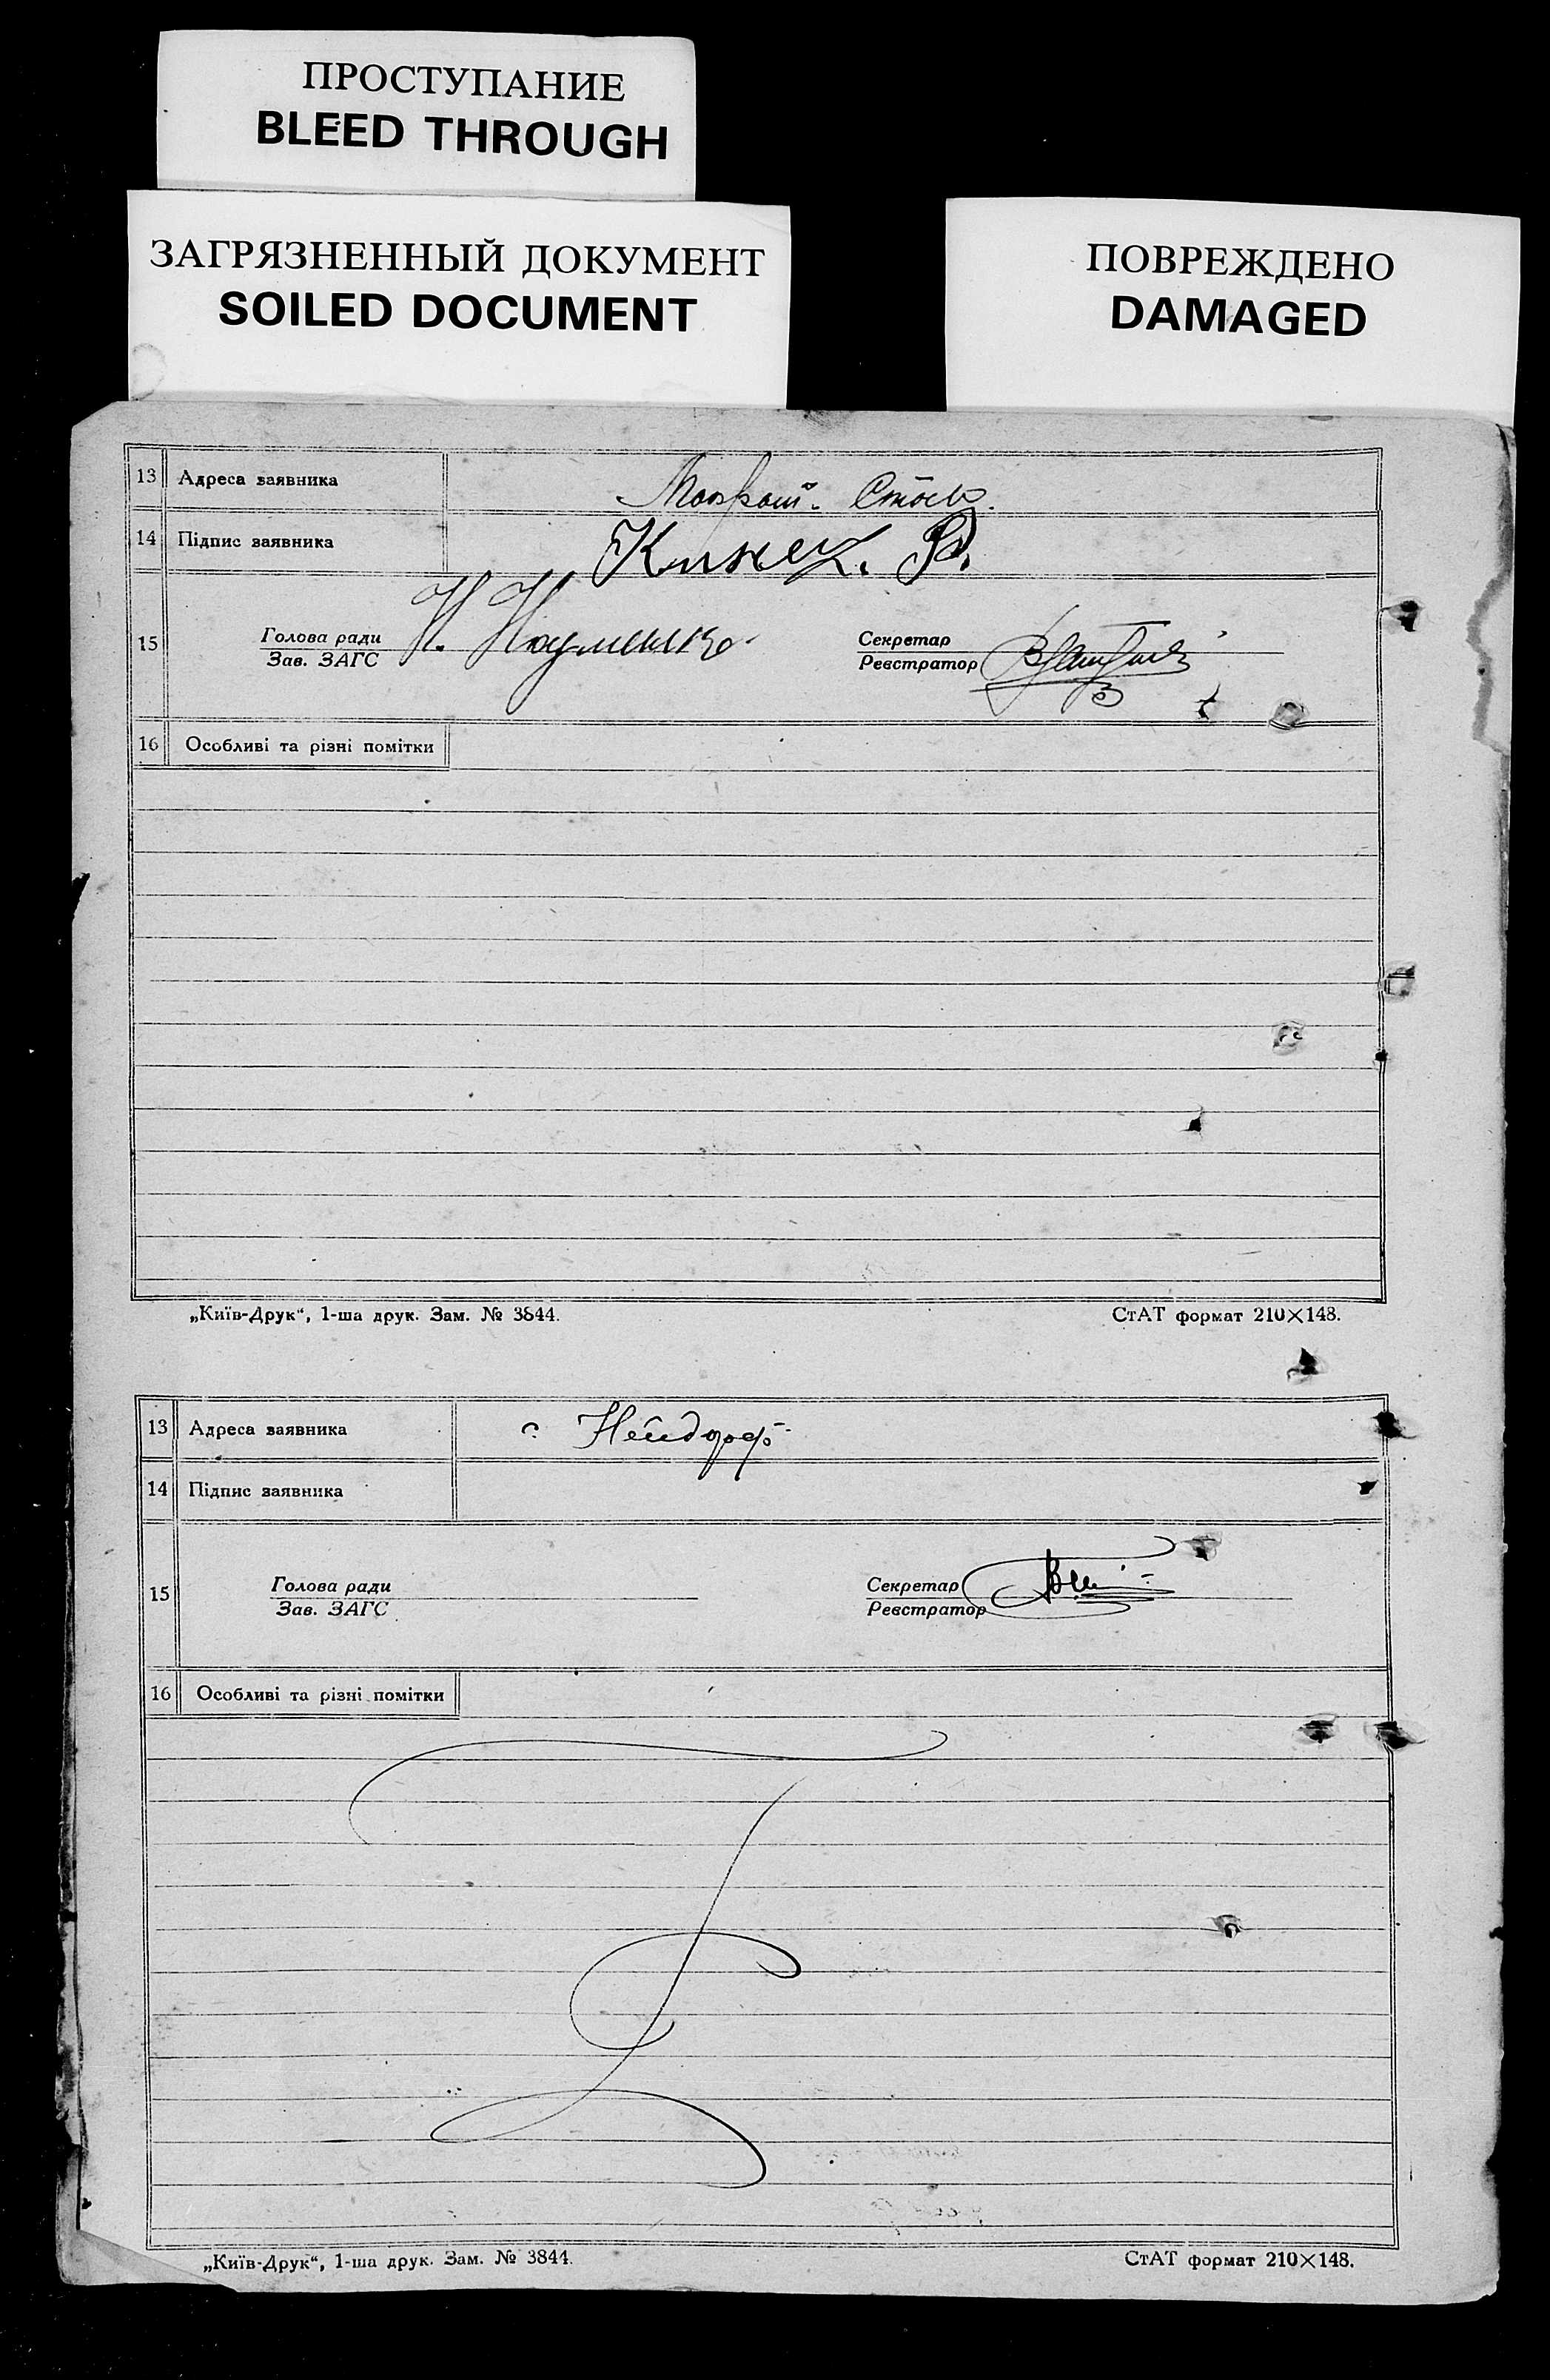 ПРОСТУПАНИЕ
BLEED THROUGH
ЗАГРЯЗНЕННЫЙ ДОКУМЕНТ
SOILED DOCUMENT
ПОВРЕЖДЕНО
DAMAGED
13 Адреса заявника
14 Підпис заявника
15 Голова ради Н. Науменко Секретар
Зав. ЗАГС Реєстратор
16 Особливі та різні помітки
„Київ-Друк“, 1-ша друк. Зам. № 3844. СтАТ формат 210×148.
13 Адреса заявника с. Нейдорф
14 Підпис заявника
15 Голова ради Секретар
Зав. ЗАГС Реєстратор
16 Особливі та різні помітки
„Київ-Друк“, 1-ша друк. Зам. № 3844. СтАТ формат 210×148.